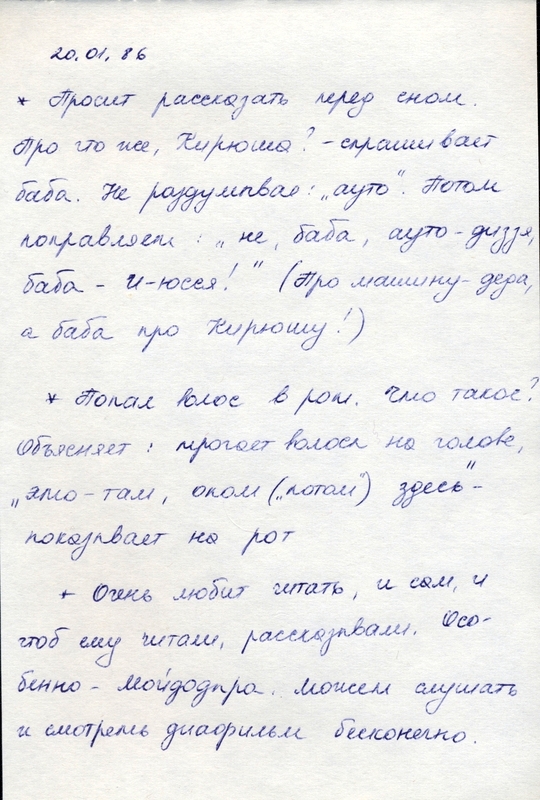 20.01.86
* Просит рассказать перед сном.
Про что же, Кирюша? - спрашивает
баба. Не раздумывая: „ауто“. Потом
поправляет: „не, баба, ауто - диззя,
баба - и-юсся!“ (Про машину - деда,
а баба про Кирюшу!)
* Попал волос в рот. Что такое?
Объясняет: трогает волосы на голове,
„это - там, опом („потом“) здесь“ -
показывает на рот
* Очень любит читать, и сам, и
чтоб ему читали, рассказывали. Осо-
бенно - Мойдодыра. Может слушать
и смотреть диафильм бесконечно.